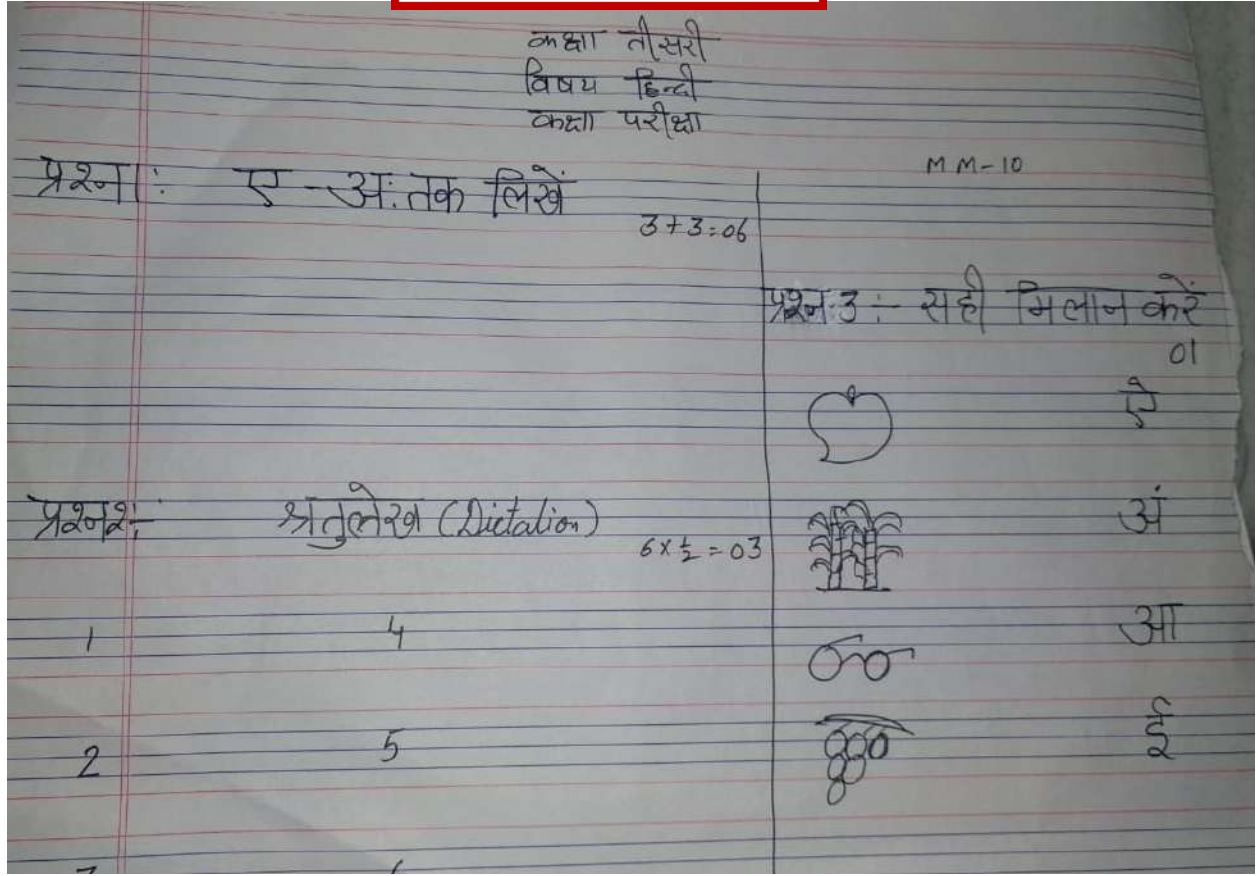 कक्षा तीसरी
विषय हिन्दी
कक्षा परीक्षा
MM-10
प्रश्न 1: ए - अः तक लिखें
3+3=06
प्रश्न2:- श्रतुलेख (Dictation)
6×½=03
1 4
2 5
प्रश्न:3:- सही मिलान करें
01
ऐ
अं
आ
ई